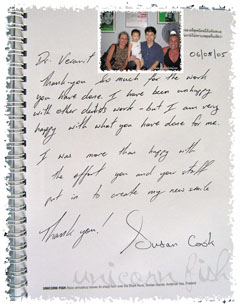 06/08/05
Dr. Veranit
Thank-you so much for the work
you have done. I have been unhappy
with other dentists work - but I am very
happy with what you have done for me.
I was more than happy with
the effort you and your staff
put in to create my new smile
Thank you!
Susan Cook
unicorn fish
UNICORN FISH